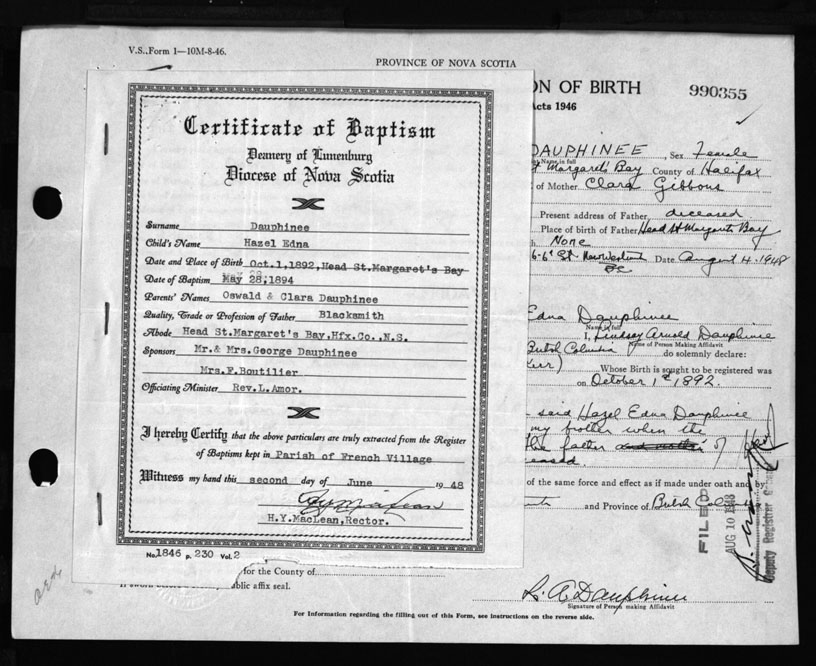 V.S..Form 1—10M-8-46.
PROVINCE OF NOVA SCOTIA
ON OF BIRTH
990355
Acts 1946
Certificate of Baptism
Deanery of Lunenburg
Diocese of Nova Scotia
Surname Dauphinee
Child's Name Hazel Edna
Date and Place of Birth Oct.1,1892,Head St.Margaret's Bay
Date of Baptism May 28,1894
Parents' Names Oswald & Clara Dauphinee
Quality, Trade or Profession of Father Blacksmith
Abode Head St.Margaret's Bay,Hfx.Co.,N.S.
Sponsors Mr.& Mrs.George Dauphinee
Mrs.F.Boutilier
Officiating Minister Rev.L.Amor.
I hereby Certify that the above particulars are truly extracted from the Register
of Baptisms kept in Parish of French Village
Witness my hand this second day of June 1948
H.Y.MacLean,Rector.
No.1846 p.230 Vol.2
DAUPHINEE, Sex Female
Name in full
t Margaret's Bay County of Halifax
of Mother Clara Gibbons
Present address of Father, deceased
Place of birth of Father, Head St Margarets Bay
h None
6-6th St. New Westmin Date August 4, 1948
BC
Edna Dauphinee
Name in full
I, Lindsay Arnold Dauphinee
Name of Person Making Affidavit
British Columbia do solemnly declare:
Whose Birth is sought to be registered was
on October 1st 1892.
said Hazel Edna Dauphinee
my brother when the
the father and mother of
deceased.
of the same force and effect as if made under oath and by
and Province of British Col
FILED
AUG 10 1948
Deputy Registrar G
for the County of
blic affix seal.
L. A Dauphinee
Signature of Person making Affidavit
For Information regarding the filling out of this Form, see instructions on the reverse side.